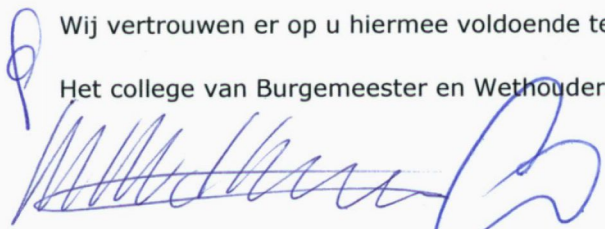 Wij vertrouwen er op u hiermee voldoende te
Het college van Burgemeester en Wethouder